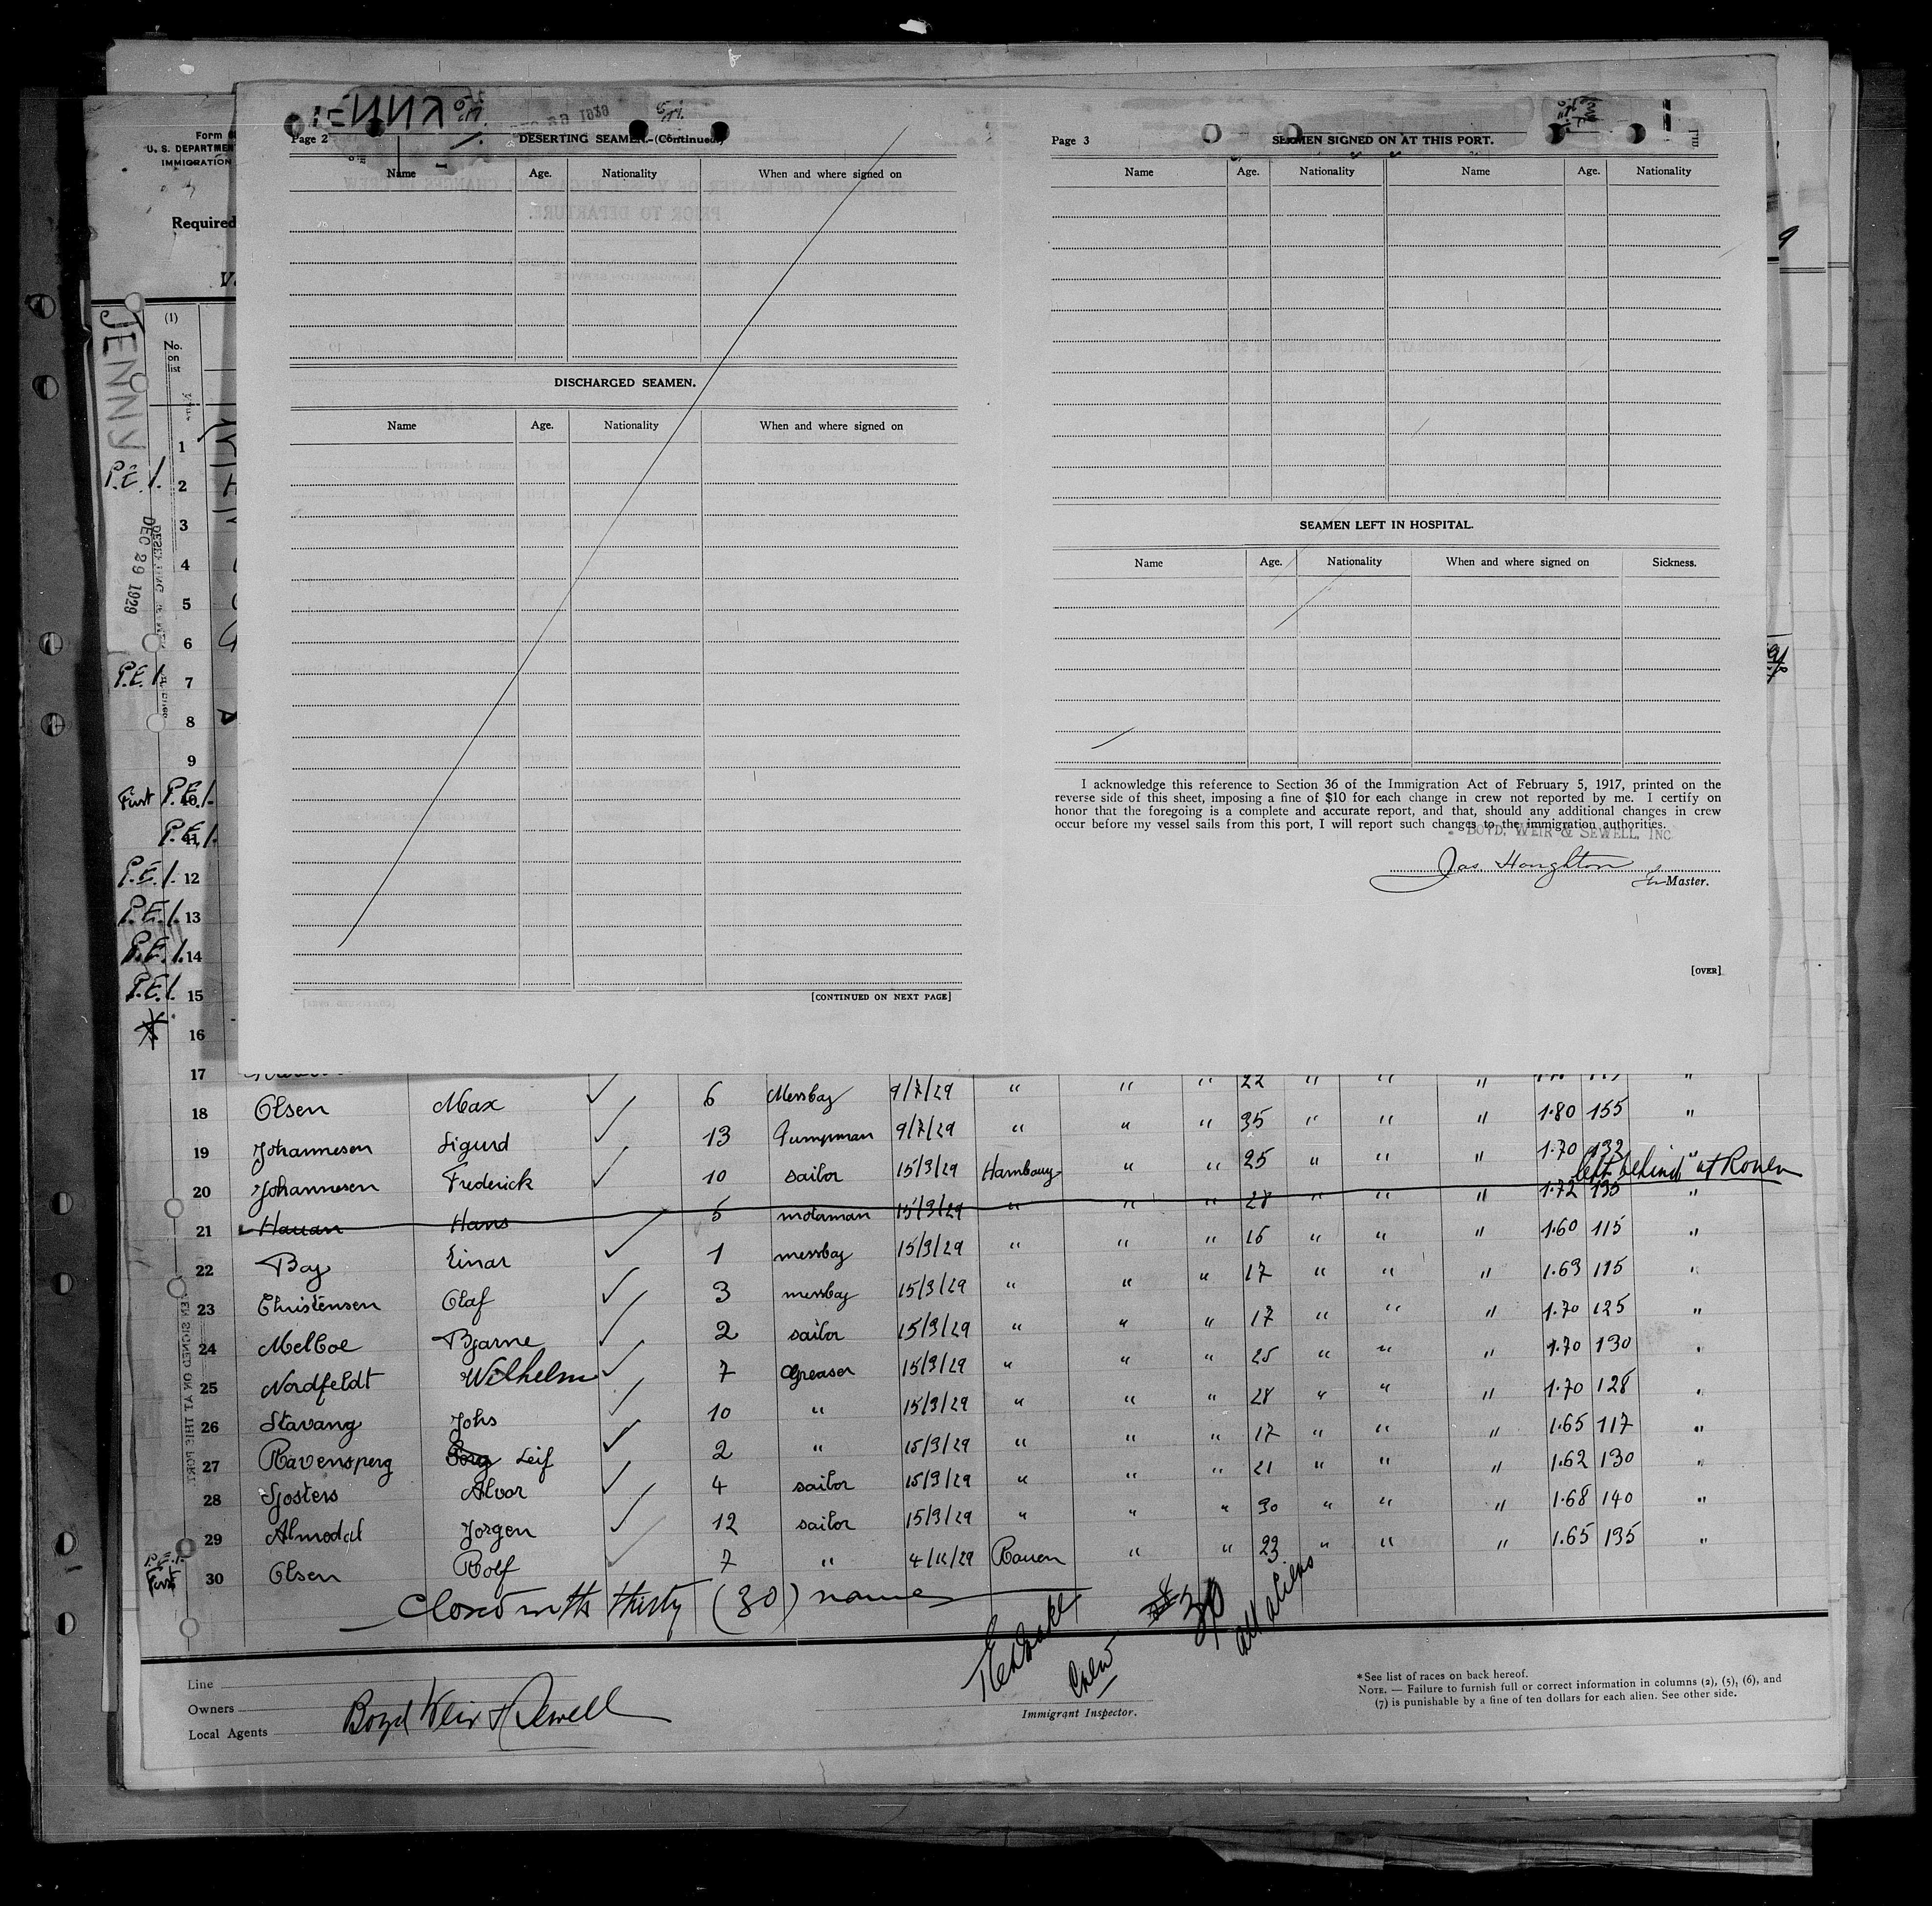 Page 2
DESERTING SEAMEN.-(Continued)
Name Age. Nationality When and where signed on
DISCHARGED SEAMEN.
Name Age. Nationality When and where signed on
[CONTINUED ON NEXT PAGE]
Page 3
SEAMEN SIGNED ON AT THIS PORT.
Name Age. Nationality Name Age. Nationality
SEAMEN LEFT IN HOSPITAL.
Name Age. Nationality When and where signed on Sickness.
I acknowledge this reference to Section 36 of the Immigration Act of February 5, 1917, printed on the
reverse side of this sheet, imposing a fine of $10 for each change in crew not reported by me. I certify on
honor that the foregoing is a complete and accurate report, and that, should any additional changes in crew
occur before my vessel sails from this port, I will report such changes to the immigration authorities.
BOYD, WEIR & SEWELL, INC
Jas. Houghton
Master.
[OVER]
U. S. DEPARTMEN
IMMIGRATION
Required
JENNY
DEC 29 1929
(1)
No.
on
list
1
P.E.1. 2
3
4
5
6
P.E.1. 7
8
9
First P.E.1. 10
P.E.1. 11
P.E.1. 12
P.E.1. 13
P.E.1. 14
P.E.1. 15
16
17 22 " " "
18 Olsen Max 6 Messboy 9/7/29 " " " 35 " " " 1.80 155 "
19 Johannesen Sigurd 13 Pumpman 9/7/29 " " " 25 " " " 1.70 132 "
20 Johannesen Frederick 10 sailor 15/9/29 Hambourg " " 28 " " " 1.72 135 "
left behind at Rouen
21 Hauan Hans 5 motorman 15/9/29 " " " 16 " " " 1.60 115 "
22 Boy Einar 1 messboy 15/9/29 " " " 17 " " " 1.63 115 "
23 Christensen Olaf 3 messboy 15/9/29 " " " 17 " " " 1.70 125 "
24 Melboe Bjarne 2 sailor 15/9/29 " " " 25 " " " 1.70 130 "
25 Nordfeldt Wilhelm 7 Greaser 15/9/29 " " " 28 " " " 1.70 128 "
26 Stavang Johs 10 " 15/9/29 " " " 17 " " " 1.65 117 "
27 Ravensperg Leif 2 " 15/9/29 " " " 21 " " " 1.62 130 "
28 Sjosters Alvar 4 sailor 15/9/29 " " " 30 " " " 1.68 140 "
29 Almodal Jorgen 12 sailor 15/9/29 " " " 23 " " " 1.65 135 "
First 30 Olsen Rolf 7 " 4/11/29 Rouen
Closed with thirty (30) names
Crew
30
all aliens
Line
Owners
Local Agents Boyd Weir & Sewell
Immigrant Inspector.
*See list of races on back hereof.
NOTE. — Failure to furnish full or correct information in columns (2), (5), (6), and
(7) is punishable by a fine of ten dollars for each alien. See other side.